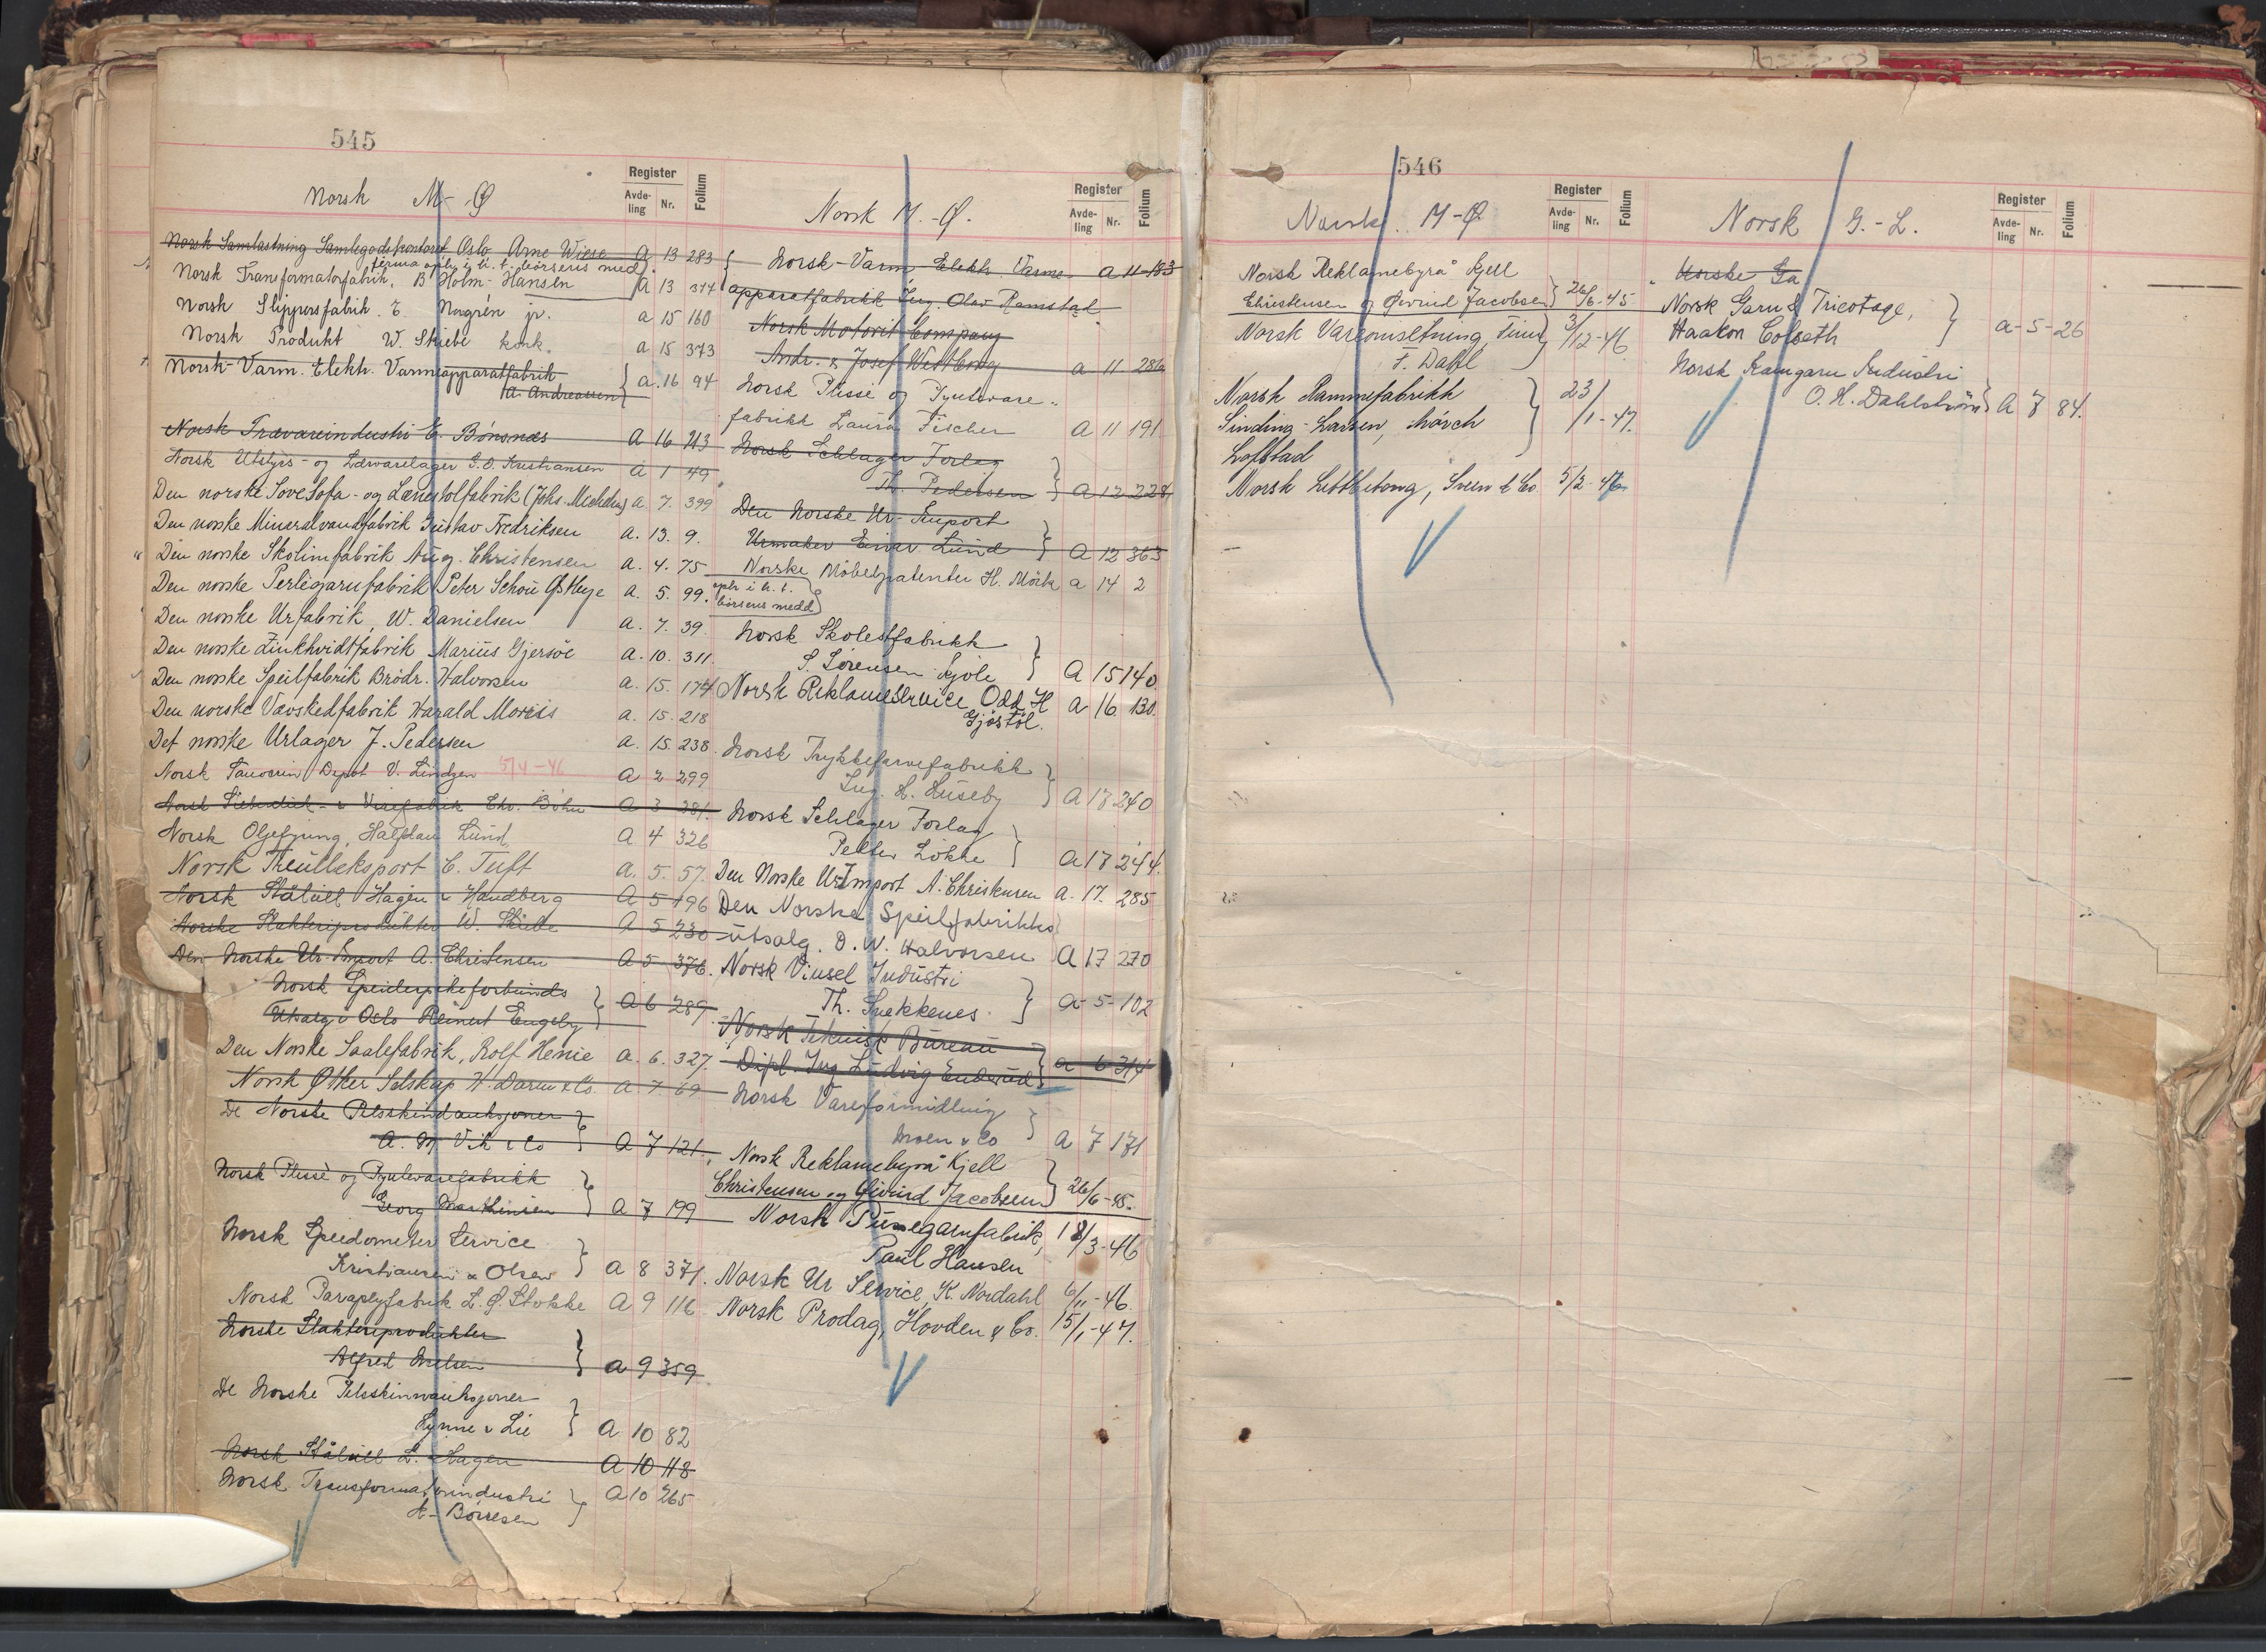 545
Norsk M-Ø
Register
Avde-
ling Nr. Folium
Norsk Samlastning Samlegodskontoret Oslo Arne Wiese A 13 283
firma opl. i h. t. børsens med.
Norsk Transformatorfabrik, B Holm-Hansen A 13 314
Norsk Slippersfabrik. E. Norgrén jr. a 15 160
Norsk Produkt W. Skiebe konk. a 15 373
Norsk-Varm. Elektr. Varmeapparatfabrik
A. Andreassen } a. 16 94
Norsk Trævareindustri E. Bónsnæs A 16 213
Norsk Utstyrs- og Lærvarelager G. O. Kristiansen a 1 49
Den norske Sove Sofa- og Lænestolfabrik (Johs. Michelsen) a. 7. 399
Den norske Mineralvandfabrik Gustav Fredriksen a. 13. 9.
Den norske Skolimfabrik Aug. Christensen a. 4. 75
Den norske Perlegarnfabrik Peter Schou Ø Heye a. 5. 99.
Den norske Urfabrik, W. Danielsen a. 7. 39.
Den norske Zinkhvidtfabrik Marius Gjersöe a. 10. 311.
Den norske Speilfabrik Brödr. Halvorsen a. 15. 174
Den norske Vævskedfabrik Harald Moriis a. 15. 218
Det norske Urlager J. Pedersen a. 15. 238.
Norsk Depot V. Lindzen 5/4-46 a 2 299
Norsk & Virefabrik Chr. Böhn a 3 281.
Norsk Oljefyring, Halfdan Lund, a 4 326
Norsk Treulleksport C. Tuft a. 5. 57.
Norsk Stålull Hagen & Handberg a 5 196
Norske Slakteriprodukter W. Skiebe a 5 230
Den Norske Ur-Import A. Christensen a 5 376.
Norsk Speiderpikeforbunds
Utsalg i Oslo Reinert Engeby } a 6 289.
Den Norske Saalefabrik, Rolf Henie a. 6. 327.
Norsk Øtker Selskap W. Darm & Co. a. 7. 69
De Norske Pelsskindauksjoner
A. M. Vik & Co } a 7 121.
Norsk Plissé og Pyntevarefabrikk
Georg Marthinsen } a 7 199
Norsk Speedometer Service
Kristiansen & Olsen } a 8 371.
Norsk Paraplyfabrik L. Ø. Stokke a 9 116
Norske Slakteriprodukter
Alfred Nielsen } a 9 359
De Norske Pelsskinnauksjoner
Lynne & Lie } a 10 82
Norsk Stålull L. Hagen a 10 118
Norsk Transformatorindustri
H. Börresen } a 10 265
Norsk M.-Ø.
Register
Avde-
ling Nr. Folium
Norsk-Varm Elektr. Varme- a 11 183
apparatfabrikk Ing. Olav Ramstad
Norsk Motorit Company
Andr. & Josef Westberg a 11 286
Norsk Plissé og Pyntevare-
fabrikk Laura Fischer a 11 191
Norsk Schlager Forlag
Th. Pedersen } a 12 228
Den Norske Ur-Import
Urmaker Einar Lund } a 12 363
Norske Möbelpatenter H. Mörk a 14 2
opl. i h. t.
børsens medd
Norsk Skolestfabrikk
S. Sörensen Gjöle } a 15 140
Norsk Reklameservice Odd H a 16. 130.
Gjöstöl.
Norsk Trykkfarvefabrikk
Ing. H. Huseby } a 17 240
Norsk Schlager Forlag
Petter Lökke } a 17 244.
Den Norske Ur Import A. Christensen a. 17. 285
Den Norske Speilfabrikks
utsalg. D. W. Halvorsen a 17 270
Norsk Vinsel Industri
Th. Svekkenes. } a-5-102
Norsk Teknisk Bureau
Dipl. Ing Ludvig Enderud } a 6 314
Norsk Vareformidling
Moen & Co } a 7 171
Norsk Reklamebyrå Kjell
Christensen og Øivind Jacobsen } 26/6-45.
Norsk Pünegarnfabrik, 18/3-46
Paul Hansen
Norsk Ur Service, K. Nordahl 6/11-46.
Norsk Prodag, Hovden & Co. 15/1-47.
546
Norsk M-Ø
Register
Avde-
ling Nr. Folium
Norsk Reklamebyrå Kjell
Christensen og Øivind Jacobsen } 26/6-45
Norsk Vareomsetning, Finn
F. Dahl } 3/12-46
Norsk Rammefabrikk
Sinding-Larsen, Mörch
Loftstad } 23/1-47.
Norsk Lettbetong, Sveen & Co. 5/3-46
Norsk G.-L.
Register
Avde-
ling Nr. Folium
Norske Ga
Norsk Garn & Tricotage,
Haakon Colseth } a-5-26
Norsk Kamgarn Industri
O. H. Dahlström } A 7 84.